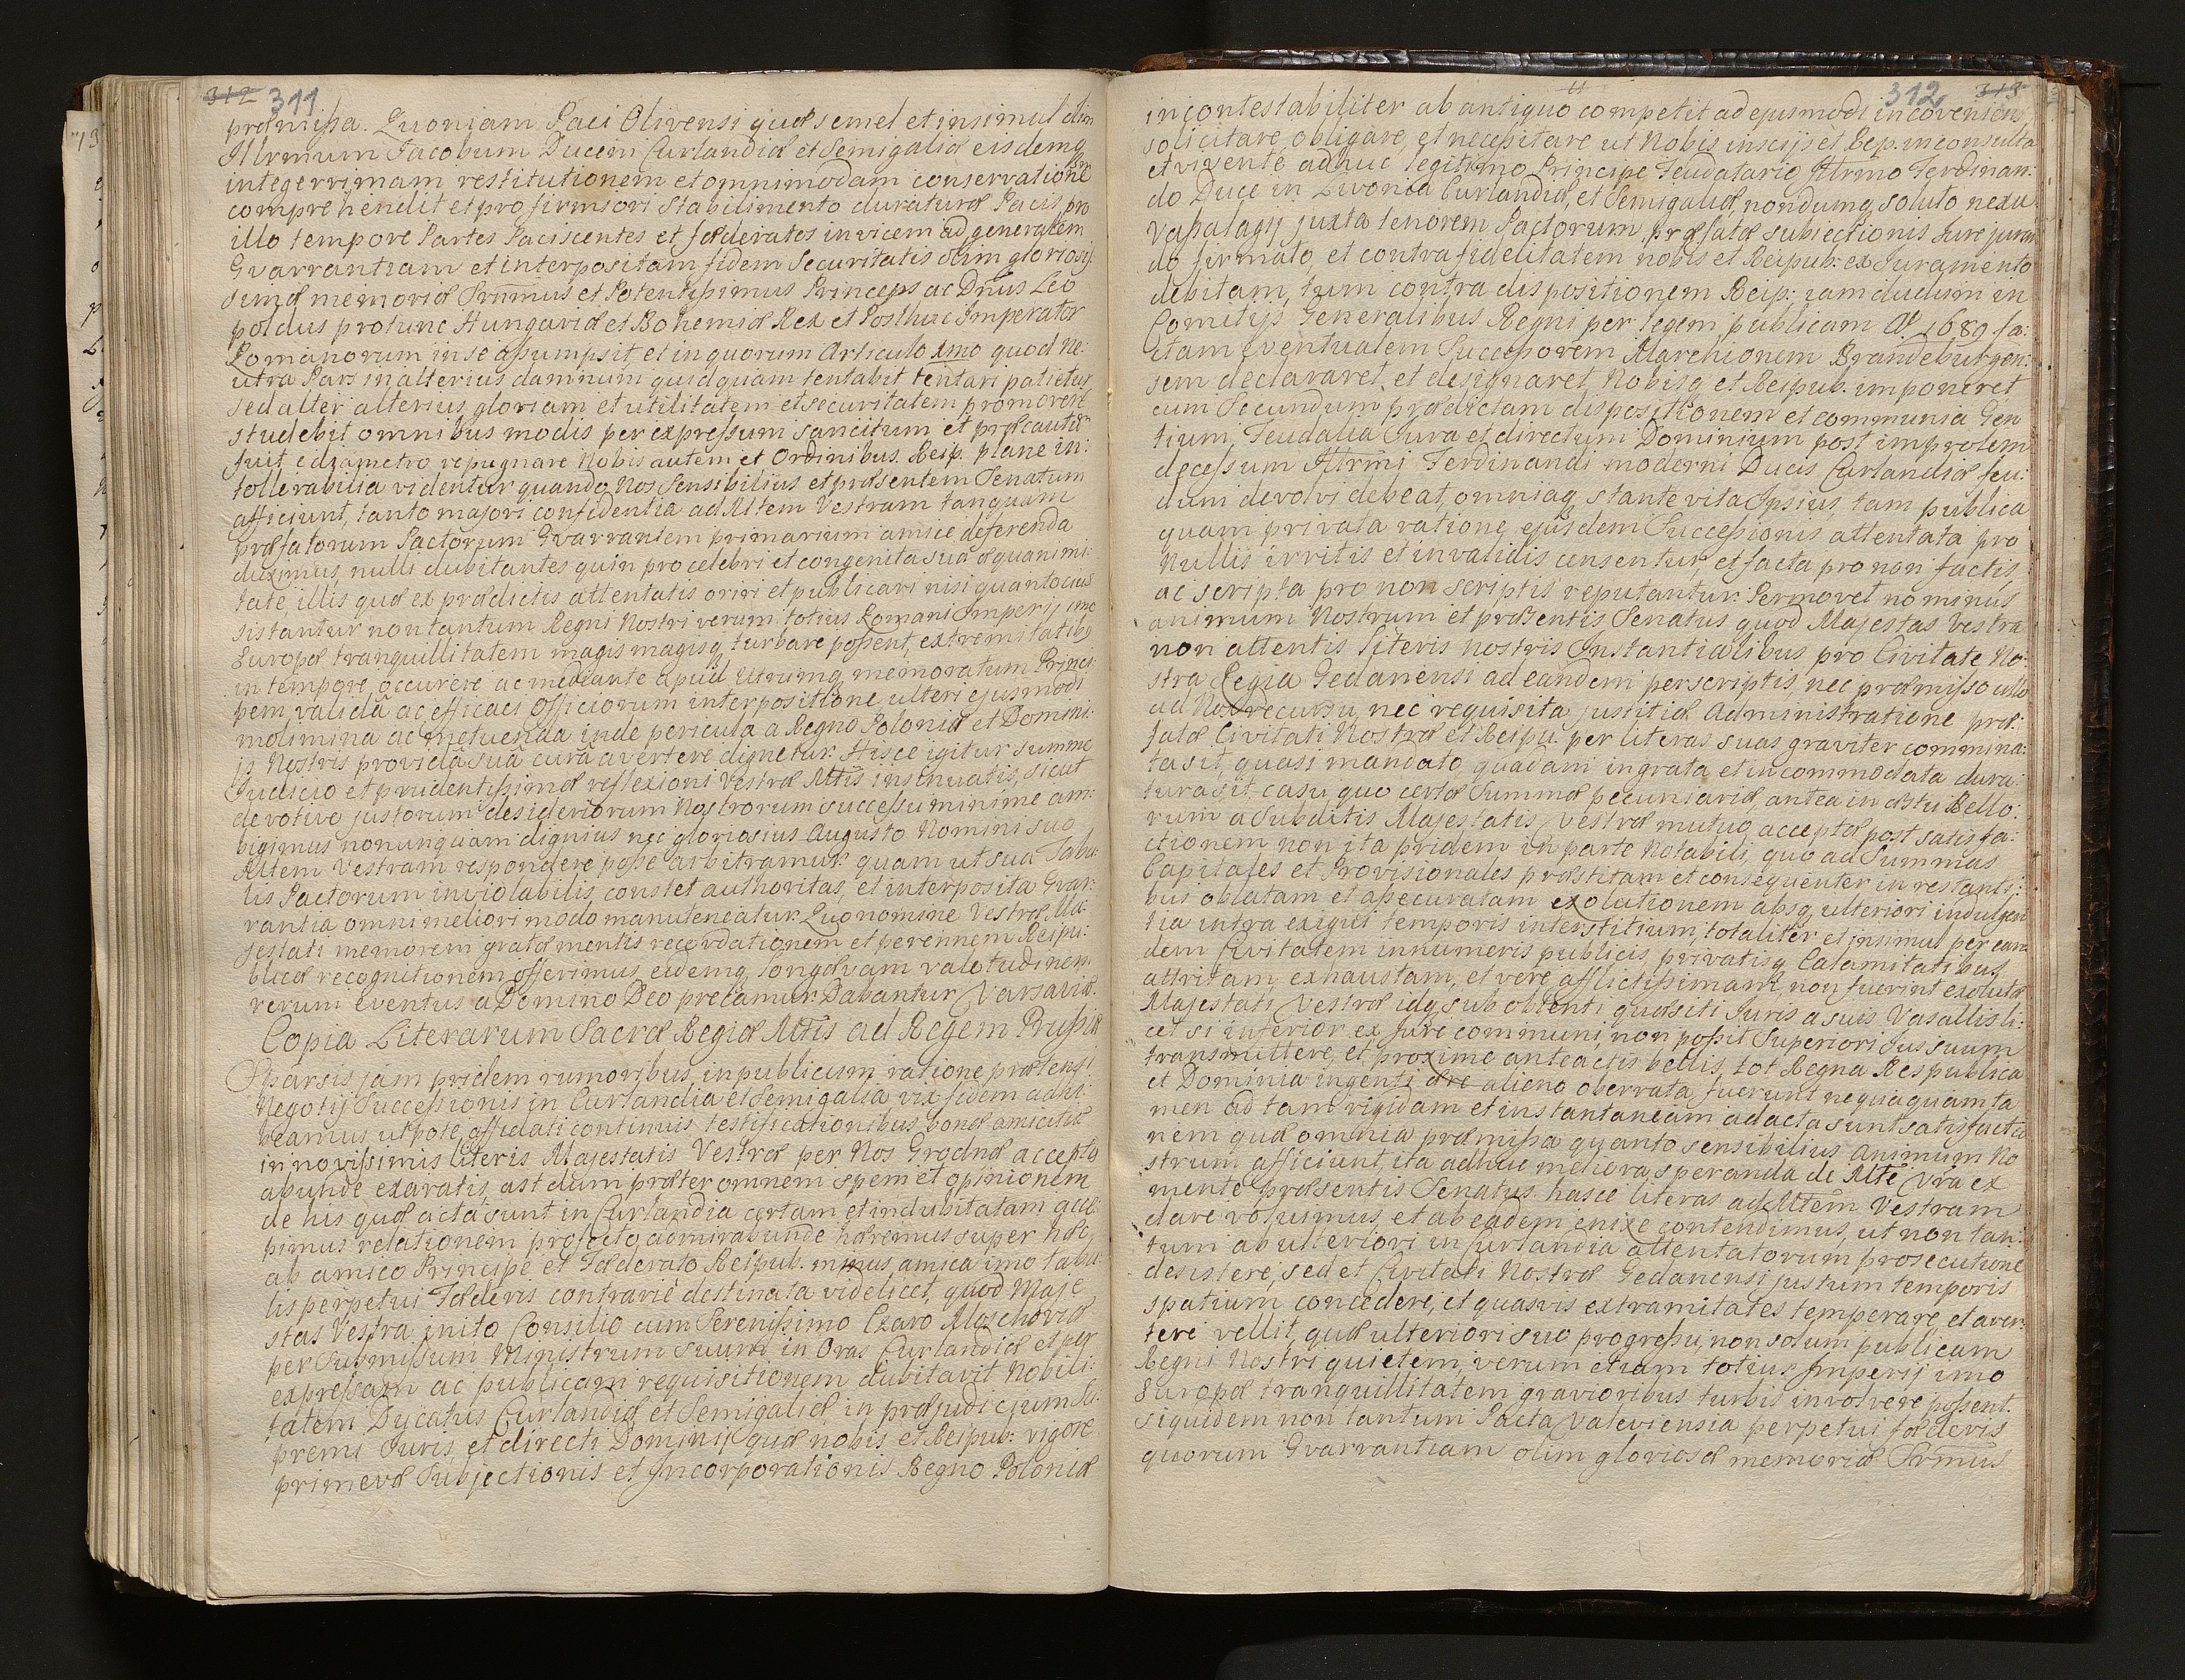 312 311
præmissa. Quoniam Paci Olivensi quæ semel et insimul olim
Illrmum Jacobum Ducem Curlandiæ et Semigaliæ eisdemq
integerrimam restitutionem et omnimodam conservationē
comprehendit et pro firmiori Stabilimento duraturæ Pacis pro
illo tempore Partes Paciscentes et fœderates invicem ad generalem
Gvarrantiam et interpositam fidem Securitatis olim gloriosis
simæ memoriæ Srm̄mus et Potentissimus Princeps ac Dn̄us Leo
poldus protunc Hungariæ et Bohemiæ Rex et Posthac Imperator
Romanorum in se assumpsit, et in quorum Articulo 1mo quod ne:
utra Pars in alterius damnum quidquam tentabit tentari patietur,
sed alter alterius gloriam et utilitatem et securitatem promovere
studebit omnibus modis per expressum sancitum et præcautū
fuit, e diametro repugnare Nobis autem et Ordinibus Reip. plane in:
tollerabilia videntur quando Nos Sensibilius et præsentem Senatum
afficiunt, tanto majori confidentia ad Mtem Vestram tanquam
præfatorum Pactorum Gvarrantem primarium amice deferenda
duximus, nulli dubitantes quin pro celebri et congenita sua æquanimi:
tate, illis quæ ex prædictis attentatis oriri et publicari nisi quantocius
sistantur non tantum Regni Nostri verum totius Romani Imperij imo
Europæ tranquillitatem magis magisq turbare possent, extremitatibꝰ
in tempore occurere ac mediante apud Utrumq memoratum Princi:
pem, valida ac efficaci Officiorum interpositione ulteri ejusmodi
molimina ac metuenda inde pericula a Regno Poloniæ et Domini:
is Nostris provida sua cura avertere dignetur. Hisce igitur summe
Judicio et prudentissimæ reflexioni Vestræ Mttis insinuatis, sicut
de votivo justorum desideriorum Nostrorum successu minime am:
bigimus nonunquam dignius nec gloriosius Augusto Nomini suo
Mtem Vestram respondere posse arbitramur. quam ut sua Tabu:
lis Pactorum inviolabilis constet authoritas, et interposita Gvar:
rantia omni meliori modo manuteneatur. Quo nomine Vestræ Ma:
jestati memorem gratæ mentis recordationem et perennem Reipu:
blicæ recognitionem offerimus, eidemq longævam valetudinem
rerum eventus a Domino Deo precamur. Dabantur Varsaviæ.
Copia Literarum Sacræ Regiæ Mtis ad Regem Prussiæ
Sparsis jam pridem rumoribus, in publicum ratione prætensi
Negotij Successionis in Curlandia et Semigalia vix fidem adhi:
beamus utpote affidati continuis testificationibus bonæ amicitiæ
in novissimis literis Majestatis Vestræ per Nos Grodnæ acceptis
abunde exaratis, ast dum præter omnem spem et opinionem
de his quæ acta sunt in Curlandia certam et indubitatam acce:
pimus relationem profecto admirabunde hæremus super hæc,
ab amico Principe et Fœderato Reipub. minus amica imo tabu:
lis perpetui Fœderis contrarie destinata videlicet, quod Maje
stas Vestra inito Consilio cum Serenissimo Czaro Moschoviæ
per Submissum Ministrum Suum in Oras Curlandiæ et per
expressam ac publicam requisitionem dubitavit Nobili:
tatem Ducatus Curlandiæ et Semigaliæ in præjudicium Su:
premi Juris, et directi Dominij quæ nobis et Reipub: vigore
primevæ Subjectionis et Incorporationis Regno Poloniæ
312 313
incontestabiliter ab antiquo competit ad ejusmodi incovenions
solicitare, obligare, et necessitare ut Nobis inscijs et Reip. inconsulta
et vivente adhuc legitimo Principe Feudatario Illrmo Ferdinan:
do Duce in Livonia Curlandiæ, et Semigaliæ, nondumq soluto nexu
Vassalagij juxta tenorem Pactorum præfatæ subiectionis jure juran
do firmato, et contra fidelitatem nobis et Reipub: ex Juramento
debitam, tum contra dispositionem Reip: iam dudum in
Comitijs Generalibus Regni per legem publicam Ao 1689 fa:
ctam Eventualem Successorem Marchionem Brandeburgen:
sem declararet, et designaret Nobisq et Reipub. imponeret
cum Secundum prædictam dispositionem et communia Gen
tium, Feudalia Jura et directum Dominium post improlem
decessum Illrmi Ferdinandi moderni Ducis Curlandiæ feu:
dum devolvi debeat, omniaq stante vita Ipsius, tam publica
quam privata ratione ejusdem Successionis attentata pro
Nullis irritis et invalidis censentur, et facta pro non factis,
ac scripta pro non scriptis reputantur. Permovet no minus
animum Nostrum et præsentis Senatus quod Majestas Vestra
non attentis literis nostris Instantialibus pro Civitate No:
stra Regia Gedanensi ad eandem perscriptis, nec præmisso ullo
ad Nos recursu, nec requisita justitiæ Administratione præ:
fatæ Civitati Nostræ et Reipu: per literas suas graviter commina:
ta sit, quasi mandato, quadam ingrata et incommodata dura:
tura sit casu quo certæ Summæ pecuniariæ antea in æstu Bello:
rum a Subditis Majestatis Vestræ mutuo acceptæ post satisfa:
ctionem non ita pridem in parte Notabili, quo ad Summas
Capitales et Provisionales præstitam et consequenter in restanti:
bus oblatam et assecuratam exolationem absq ulteriori indulgen
tia intra exigui temporis interstitium, totaliter et insimul per ean
dem Civitatem innumeris publicis, privatisq Calamitatibus
attritam, exhaustam, et vere afflictissimam non fuerint exolutæ
Majestati Vestræ idq sub obtenti quæsiti Juris a suis Vasallis li:
cet si inferior ex jure communi, non possit Superiori Jus suum
transmittere, et proxime anteactis bellis, tot Regna Respublica
et Dominia ingenti ære alieno oberrata, fuerunt nequaquam ta
men ad tam rigidam et instantaneam adacta sunt satisfactio
nem quæ omnia præmissa quanto sensibilius Animum No
strum afficiunt, ita adhuc meliora speranda de Mte Vra ex
mente præsentis Senatus hasce literas ad Mtem Vestram
dare voluimus, et ab eadem enixe contendimus, ut non tan:
tum ab ulteriori in Curlandia attentatorum prosecutione
desistere, sed et Civitati Nostræ Gedanensi justum temporis
spatium concedere, et quasvis extramitates temperare, et aver:
tere vellit, quæ ulteriori suo progressu, non solum publicam
Regni Nostri quietem, verum etiam totius Imperij imo
Europæ tranquillitatem gravioribus turbis involvere possent.
Siquidem non tantum Pacta Valeviensia perpetui fœderis
quorum Gvarrantiam olim gloriosæ memoriæ Srmus